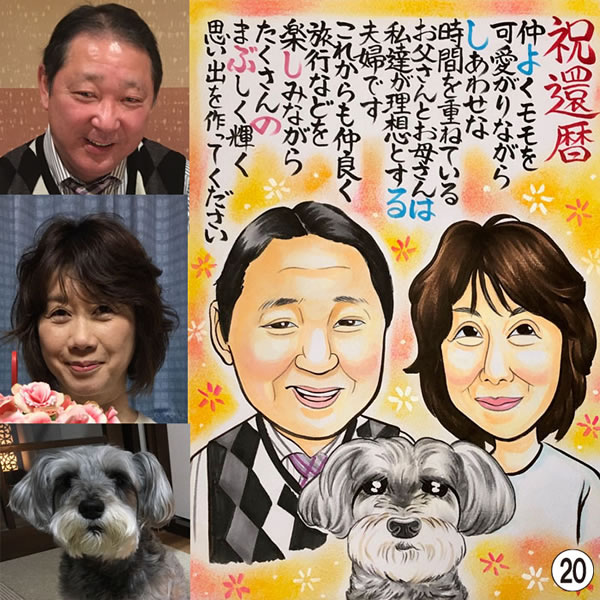 祝還暦
仲よくモモを
可愛がりながら
しあわせな
時間を重ねている
お父さんとお母さんは
私達が理想とする
夫婦です
これからも仲良く
旅行などを
楽しみながら
たくさんの
まぶしく輝く
思い出を作ってください
20